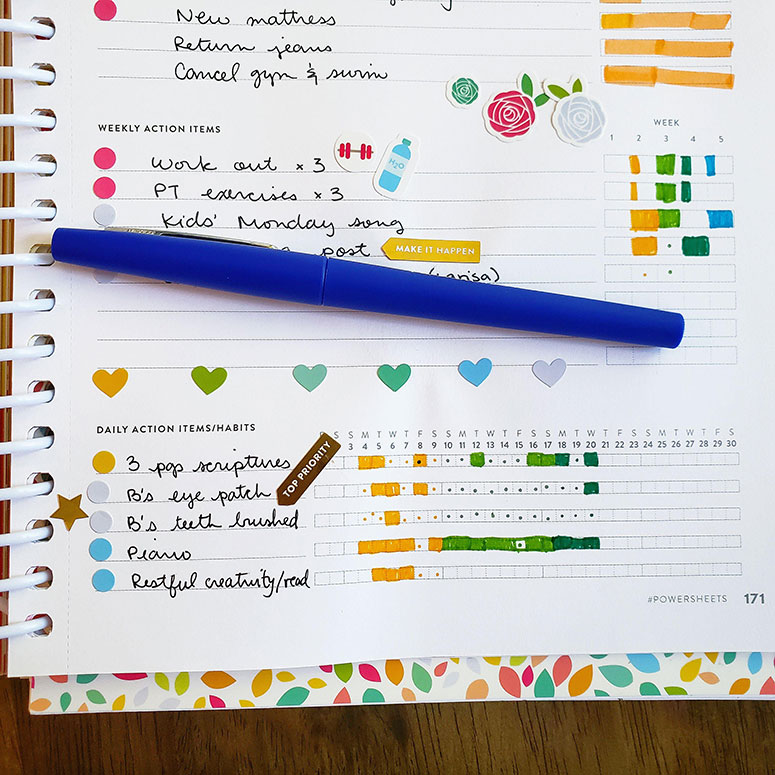 New mattress
Return jeans
Cancel gym & swim
WEEKLY ACTION ITEMS
WEEK
1 2 3 4 5
Work out x 3
H2O
PT exercises x 3
Kids' Monday song
post
MAKE IT HAPPEN
DAILY ACTION ITEMS/HABITS
S S M T W T F S S M T W T F S S M T W T F S S M T W T F S
3 4 5 6 7 8 9 10 11 12 13 14 15 16 17 18 19 20 21 22 23 24 25 26 27 28 29 30
3 pgs scriptures
TOP PRIORITY
B's eye patch
B's teeth brushed
Piano
Restful creativity/read
#POWERSHEETS 171